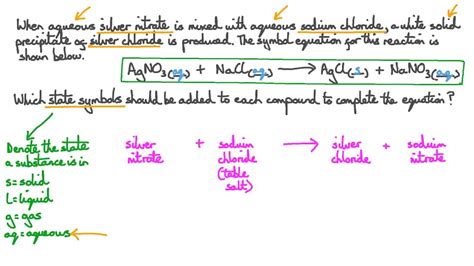 When aqueous silver nitrate is mixed with aqueous sodium chloride, a white solid
precipitate of silver chloride is produced. The symbol equation for this reaction is
shown below.
AgNO₃(aq) + NaCl(aq) ⟶ AgCl(s) + NaNO₃(aq)
Which state symbols should be added to each compound to complete the equation?
Denote the state
a substance is in
s=solid
L=liquid
g=gas
aq=aqueous
silver + sodium ⟶ silver + sodium
nitrate chloride chloride nitrate
(table
salt)